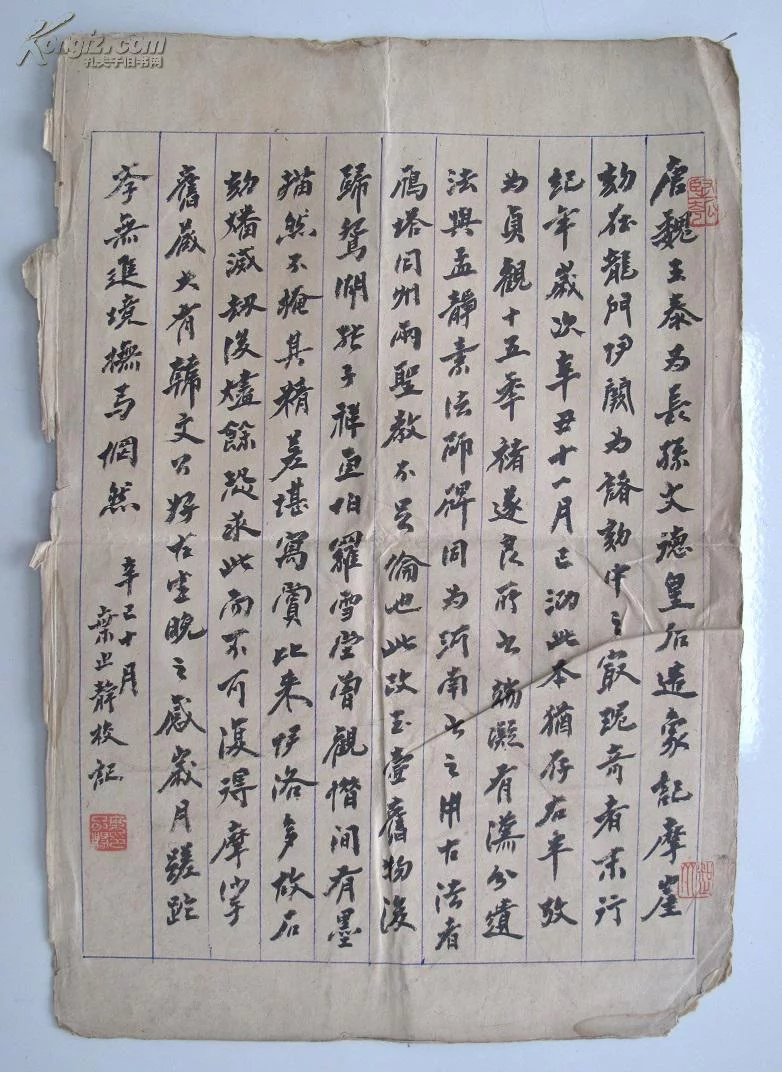 唐魏王泰為長孫文德皇后造象記摩崖
刻在龍門伊闕為諸刻中之最瑰奇者末行
紀年歲次辛丑十一月已泐此本猶存右半攷
為貞觀十五年褚遂良所書端凝有漢分遺
法與孟靜素法師碑同為河南書之用古法者
鴈塔同州兩聖教不足倫也此故玉壺舊物後
歸鴛湖張子祥更怕羅雪堂曾觀惜間有墨
描然不掩其精差堪寫賞比来伊洛多故石
刻燔滅劫後燼餘恐求此而不可復得摩挲
舊藏大有韓文公好古生晚之感歲月蹉跎
學無進境撫焉惘然
辛巳十月
葉止靜校記
Kongfz.com
孔夫子旧书网